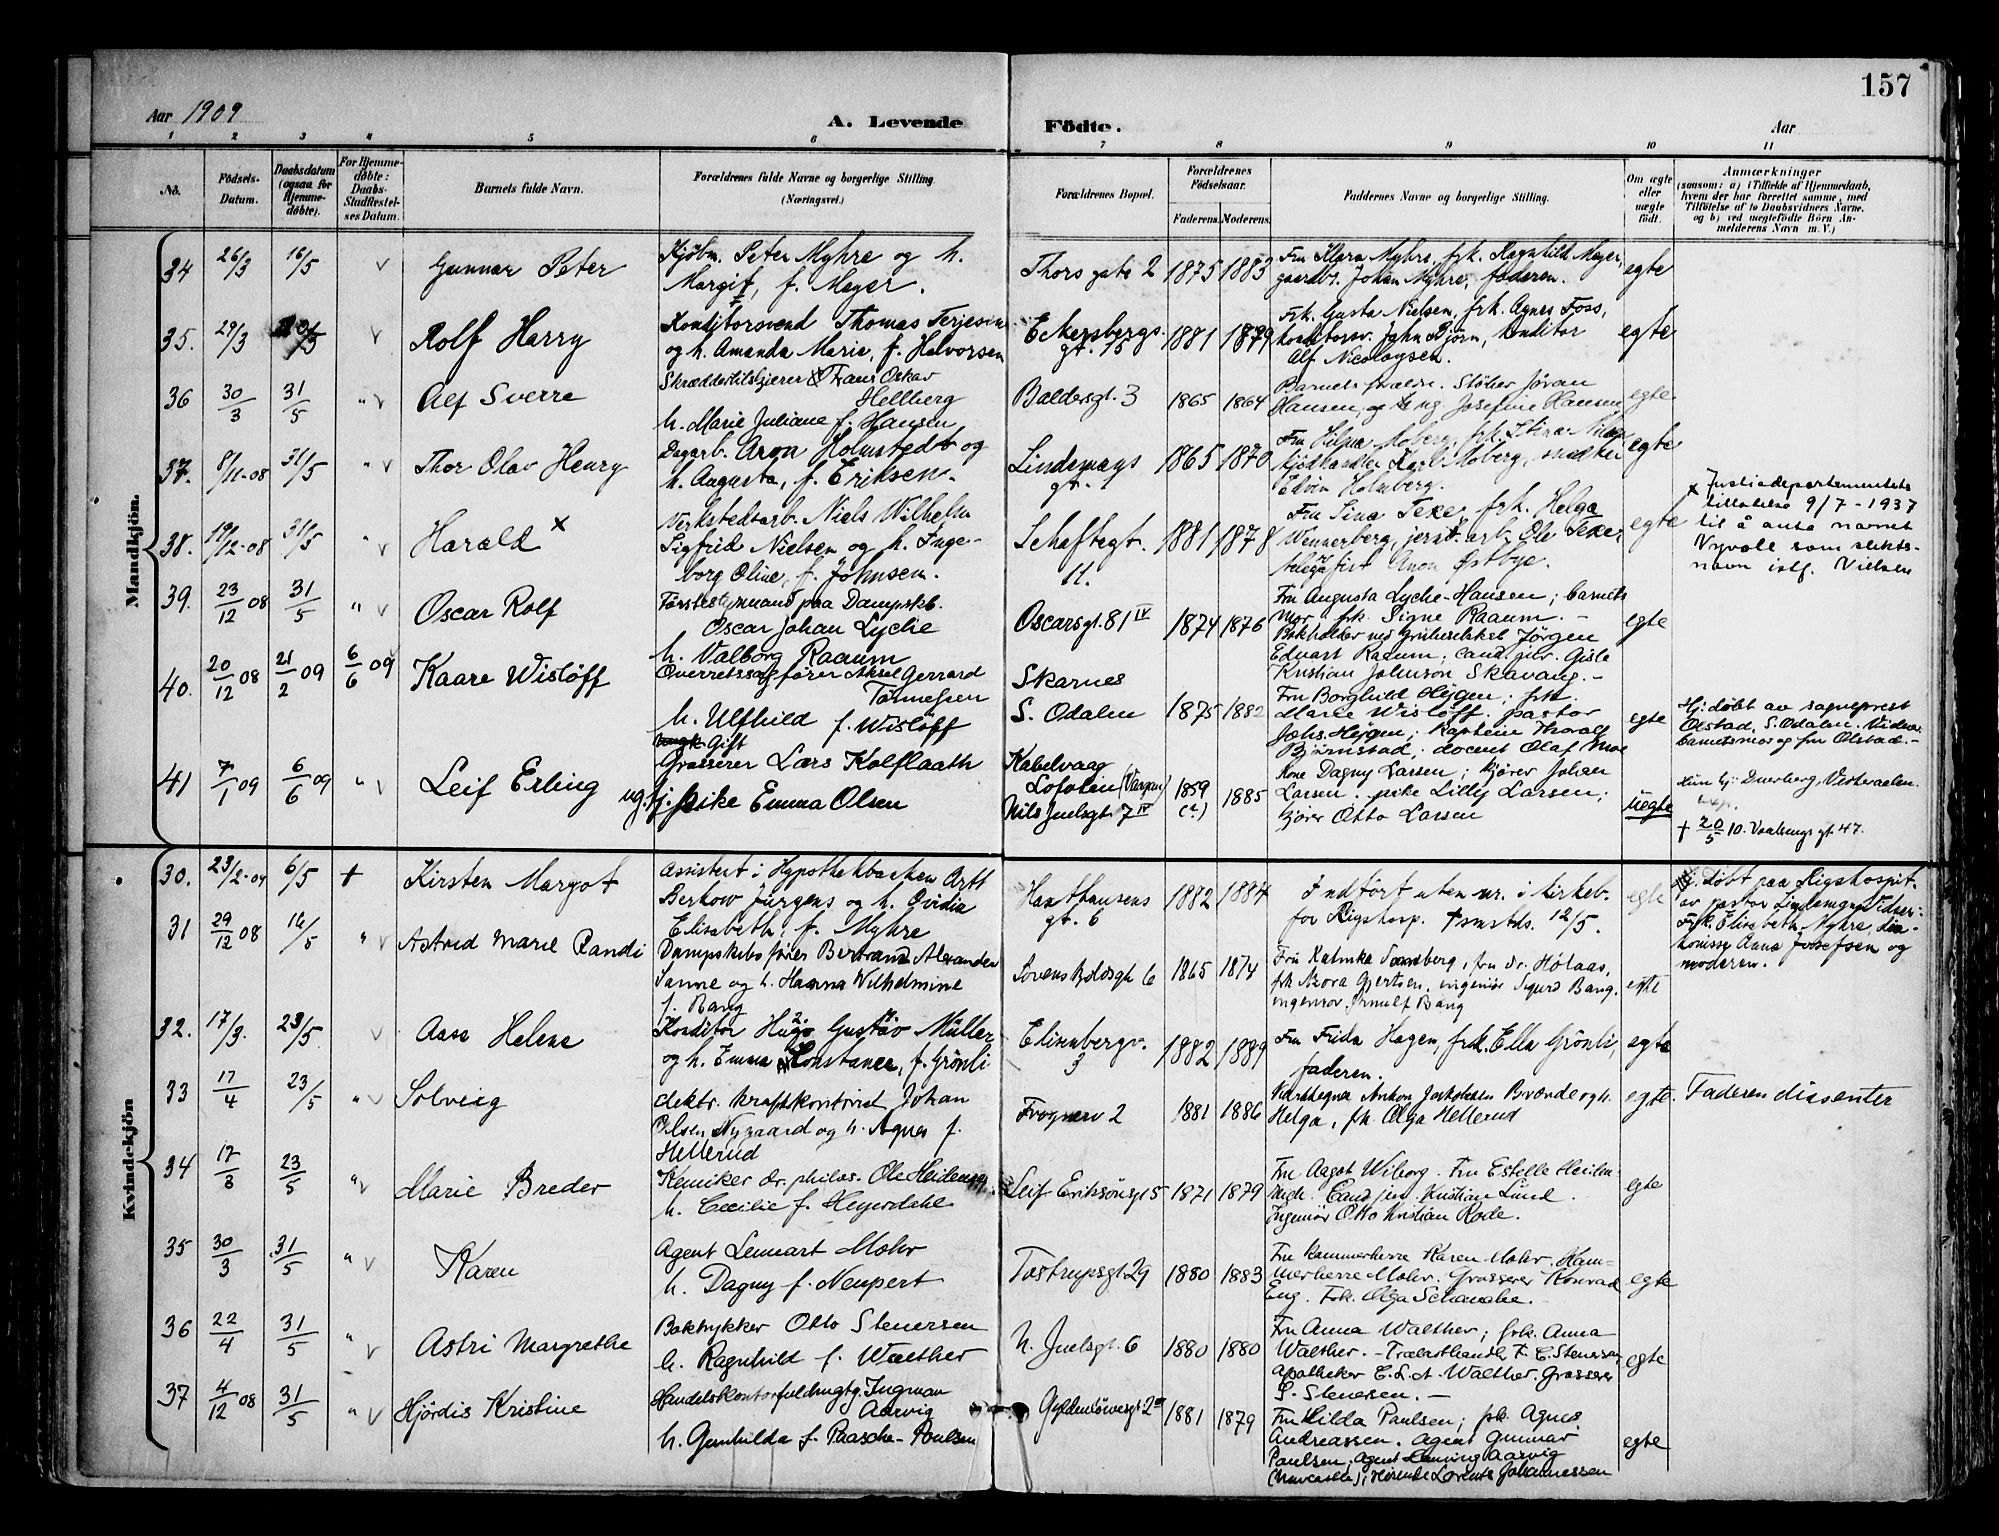 157
Aar 1909
A. Levende
Födte.
Aar
1 2 3 4 5 6 7 8 9 10 11
No.
Födsels-Datum.
Daabsdatum (ogsaa for Hjemme-döbte).
For Hjemme-döbte: Daabs-Stadfæstel-ses Datum.
Barnets fulde Navn.
Forældrenes fulde Navne og borgerlige Stilling. (Næringsvei.)
Forældrenes Bopæl.
Forældrenes Födselsaar.
Faderens. Moderens.
Faddernes Navne og borgerlige Stilling.
Om ægte eller uægte födt.
Anmærkninger
(saasom: a) i Tilfælde af Hjemmedaab, hvem der har forrettet samme, med Tilföielse af to Daabsvidners Navne, og b) ved uægtefödte Börn An-melderens Navn m. V.)
Mandkjön.
34 26/3 16/5 v Gunnar Peter
Kjøbm. Peter Myhre og h.
Margit, f. Meyer.
Thors gate 2 1875 1883
Fru Klara Myhre, frk. Ragnhild Meyer,
gaardbr. Johan Myhre, faderen.
egte
35. 29/3 v Rolf Harry
Konditorsvend Thomas Terjesen
og h. Amanda Marie, f. Halvorsen
Eckersbergs.
gt. 15 1881 1879
Frk. Gusta Nielsen, frk. Agnes Foss,
konditorsv. John Bjørn, konditor
Alf Nicolaysen.
egte
36 30/3 31/5 " v Alf Sverre
Skræddertilskjærer Frans Oskar
Hellberg
h. Marie Juliane f. Hansen
Baldersgt. 3 1865 1864
Barnets forældre. Støber Jøran
Hansen, og Josefine Hansen
egte
37. 8/11-08 31/5 " v Thor Olav Henry
Dagarb. Aron Holmstedt og
h. Augusta, f. Eriksen.
Lindemans
gt. 1 1865 1870
Fru Hilma Moberg, frk. Stina
kjødhandler Karl Moberg, snedker
Edvin Holmberg.
egte
38. 19/12-08 31/5 " v Harald x
Verkstedsarb. Niels Wilhelm
Sigfrid Nielsen og h. Inge-
borg Oline, f. Johnsen.
Schaftegt.
11. 1881 1878
Fru Lina Texe, frk. Helga
Wennerberg, jernb. arb. Ole Texe,
Anon Østbye.
egte
x Justisdepartementets
tillatelse 9/7 - 1937
til å anta navnet
Vyvale som slekts-
navn istf. Nielsen
39. 23/12 08 31/5 " v Oscar Rolf
Førstestyrmand paa Dampskb.
Oscar Johan Lyche
h. Valborg Raaum
Oscarsgt. 81 IV 1874 1876
Fru Augusta Lyche-Hansen; barnets
Mor. frk. Signe Raaum. -
Bokholder ved Jørgen
Edvart Raaum; cand. jur. Gisle
Kristian Johnson Skavang. -
egte
40. 20/12 08 21/2 09 6/6 09 Kaare Wisløff
Overretssagfører Aksel Gerrard
Tønnesen
h. Ulfhild f. Wisløff
Skarnes
S. Odalen 1875 1882
Fru Borghild Heigen; frk.
Marie Wisløff. pastor
Johs. Heigen; Kaptein Thoralf
Bjørnstad; docent Olaf Moe
egte
Hj. døbt av sogneprest
Olstad, S. Odalen. Vidner
barnets mor og fru Olstad. -
41 7/1 09 6/6 09 " v Leif Erling
Gift
Grosserer Lars Kolflaath
ug. pike Emma Olsen
Kabelvaag
Lofoten (Vaagan)
Nils Juelsgt. 7 IV 1859 (?) 1885
Kone Dagny Larsen; kjører Johan
Larsen. pike Lilly Larsen;
kjører Otto Larsen
uegte
† 20/5 10. Vaalerengt. 47.
Kvindekjön
30. 23/2-09 6/5 + Kirsten Margot
Assistent i Hypothekbanken Artt
Berkow Jürgens og h. Ovidia
Elisabeth, f. Myhre
Hauthausens
gt. 6 1882 1884
Indført uten nr. i kirkeb.
for Rigshosp. † smstds. 12/5.
egte
Hj. døbt paa Rigshospit.
av pastor Lindeman. Vidner:
Frk. Elisabeth Myhre, dia-
konisse Anna Josefsen og
moderen.
31 29/12 08 16/5 " v Astrid Marie Randi
Dampskibsfører Bertrand Alexander
Sanne og h. Hanna Wilhelmine
f. Bang
Sorens Bulls gt 6 1865 1874
Fru Katinka Tønsberg, fru dr. Hølaas,
frk Nzora Gjertsen, ingeniør Sigurd Bang,
ingeniør Arnulf Bang
egte
32. 17/3. 23/5. v Aase Helene
Konditor Hugo Gustav Müller
og h. Emma Konstance, f. Grønli
Elisenbergv.
3 1882 1889
Fru Frida Hagen, frk. Ella Grønli,
faderen.
egte
33 17/4 23/5 " v Solveig
elektr. kraftkontorist Johan
Olsen Nygaard og h. Agnes f.
Hellerud
Frognerv 2 1881 1886
Anton Brænde og h.
Helga, frk. Olga Hellerud
egte.
Faderen dissenter
34 17/3 23/5 " v Marie Breder
Kemiker dr. philos. Ole Heidenreich.
h. Cecilie f. Heyerdahl
Leif Eriksönsgt 5 1871 1879
Fru Aagot Wiborg. Fru Estelle Heiden-
reich. Cand jur. Kristian Lund.
Ingeniør Otto Kristian Rode.
egte
35 30/3 31/5 " v Karen
Agent Lennart Mohr
h. Dagny f. Neupert
Tostrupsgt. 29 1880 1883
Fru Kammerherre Karen Mohr. Kam-
merherre Mohr. Grosserer Konrad
Eng. Frk. Olga Schwabe.
egte
36 22/4 31/5 " v Astri Margrethe
Boktrykker Otto Stenersen
h. Ragnhild f. Walther
N. Juelsgt. 6 1880 1880
Fru Anna Walther; frk. Anna
Walther. - Trælasthandler F. C. Stenersen,
Apotheker E. L. A. Walther. Grosserer
S. Stenersen. -
egte
37 4/12 08 31/5 " v Hjördis Kristine
Handelskontorfuldmægtg Ingmar
Aarvig
h. Gunhilda f. Paasche-Poulsen
Gyldenløvesgt. 2 1881 1879
Fru Hilda Paulsen; frk. Agnes
Andreassen. Agent Gunnar
Paulsen; Agent Henning Aarvig
(Newcastle); Lorentz Johannessen
egte